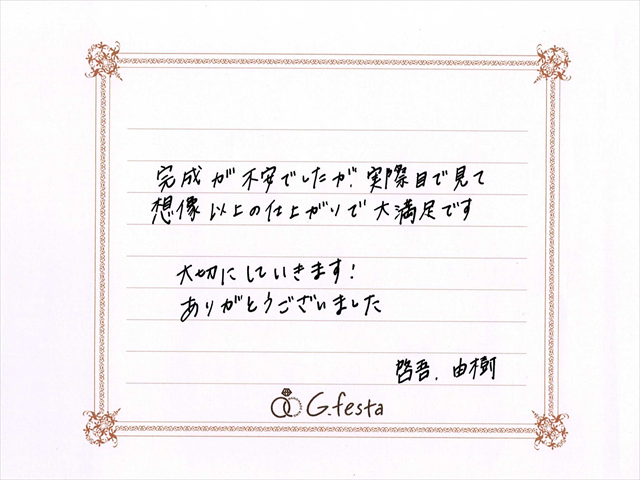 完成が不安でしたが、実際目で見て
想像以上の仕上がりで大満足です
大切にしていきます!
ありがとうございました
啓吾、由樹
G.festa